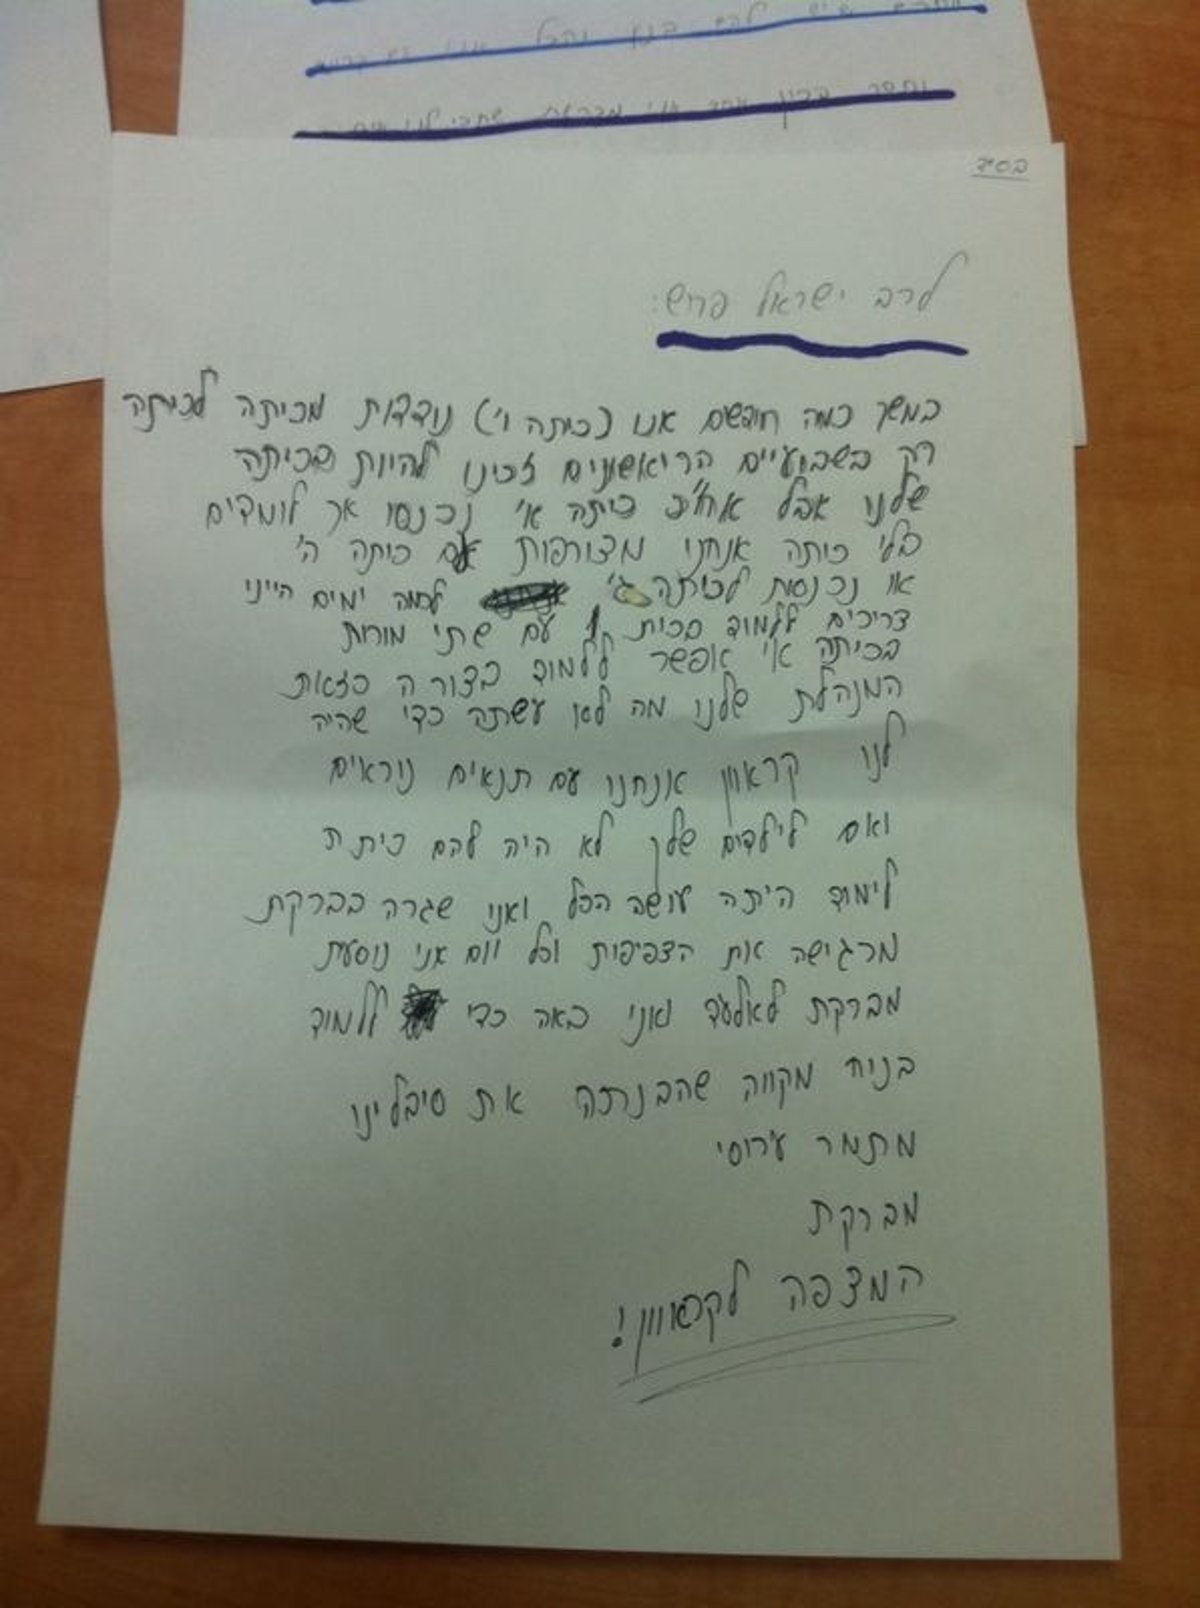 בס"ד
לרב ישראל פרוש:
במשך כמה חודשים אנו (כיתה ו') נודדות מכיתה לכיתה
רק בשבועיים הריאשונים זכינו להיות בכיתה
שלנו אבל אח"כ כיתה א' נכנסו אך לומדים
בלי כיתה אנחנו מצורפות עם כיתה ה'
או נכנסת לכיתה ג' לכמה ימים היינו
צריכים ללמוד בכית 1 עם שתי מורות
בכיתה אי אפשר ללמוד בצורה כזאת
המנהלת שלנו מה לא עשתה כדי שהיה
לנו קראוון אנחנו עם תנאים נוראים
ואם לילדים שלך לא היה להם כיתת
לימוד היתה עושה הכל ואני שגרה בברקת
מרגישה את הצפיפות וכל יום אני נוסעת
מברקת לאלעד ואני באה כדי ללמוד
בניח מקווה שהבנתה את סיבלינו
מתמר ערוסי
מברקת
המצפה לקראוון!